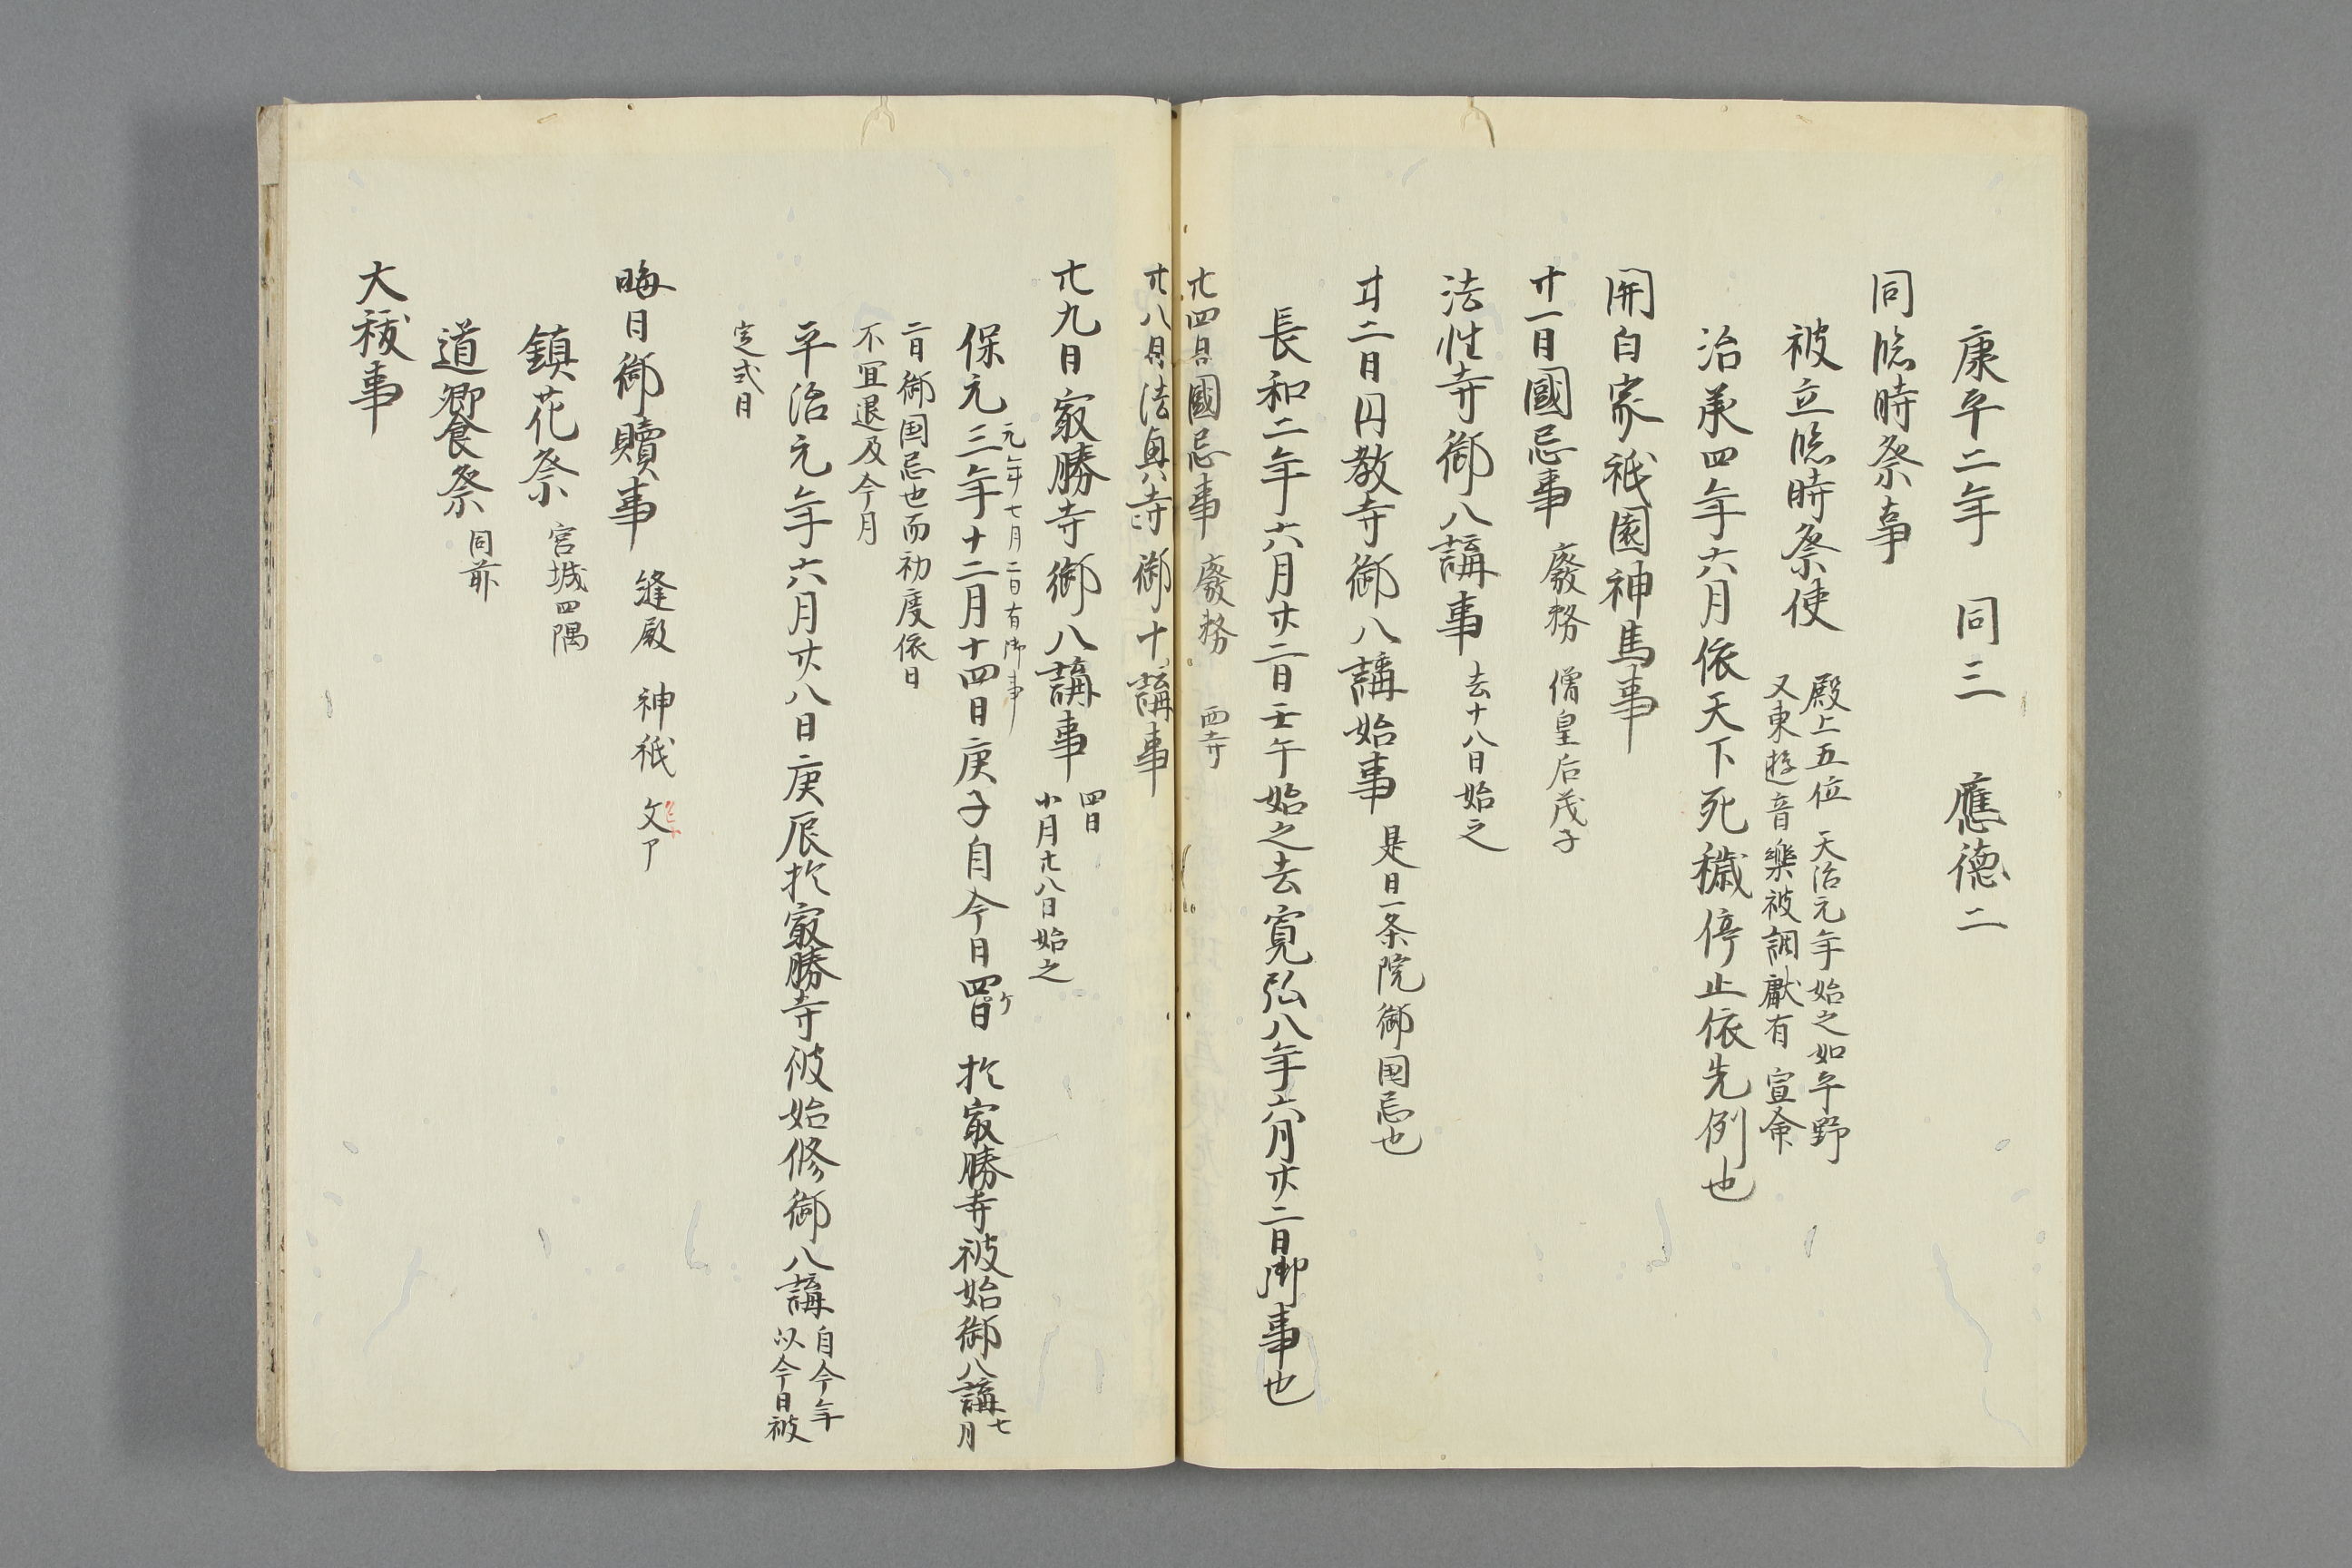 康平二年 同三 應德二
同臨時祭事
被立臨時祭使 殿上五位 天治元年始之如平野
又東遊音樂被調獻有 宣命
治承四年六月依天下死穢停止依先例也
関白家祇園神馬事
廿一日國忌事 廢務 僧皇后茂子
法性寺御八講事 去十八日始之
廿二日円教寺御八講始事 是日一条院御国忌也
長和二年六月廿二日壬午始之去寛弘八年六月廿二日御事也
廿四日國忌事 廢務 西寺
廿八日法興寺御十講事
廿九日冣勝寺御八講事 四日
小月廿八日始之
元年七月二日有御事
保元三年十二月十四日庚子自今日四ケ日 於冣勝寺被始御八講 七月
二日御国忌也而初度依日
不宜退及今月
平治元年六月廿八日庚辰於冣勝寺被始修御八講 自今年
以今日被
定式日
晦日御贖事 縫殿 神祇 文ア
鎮花祭 宮城四隅
道饗祭 同前
大秡事